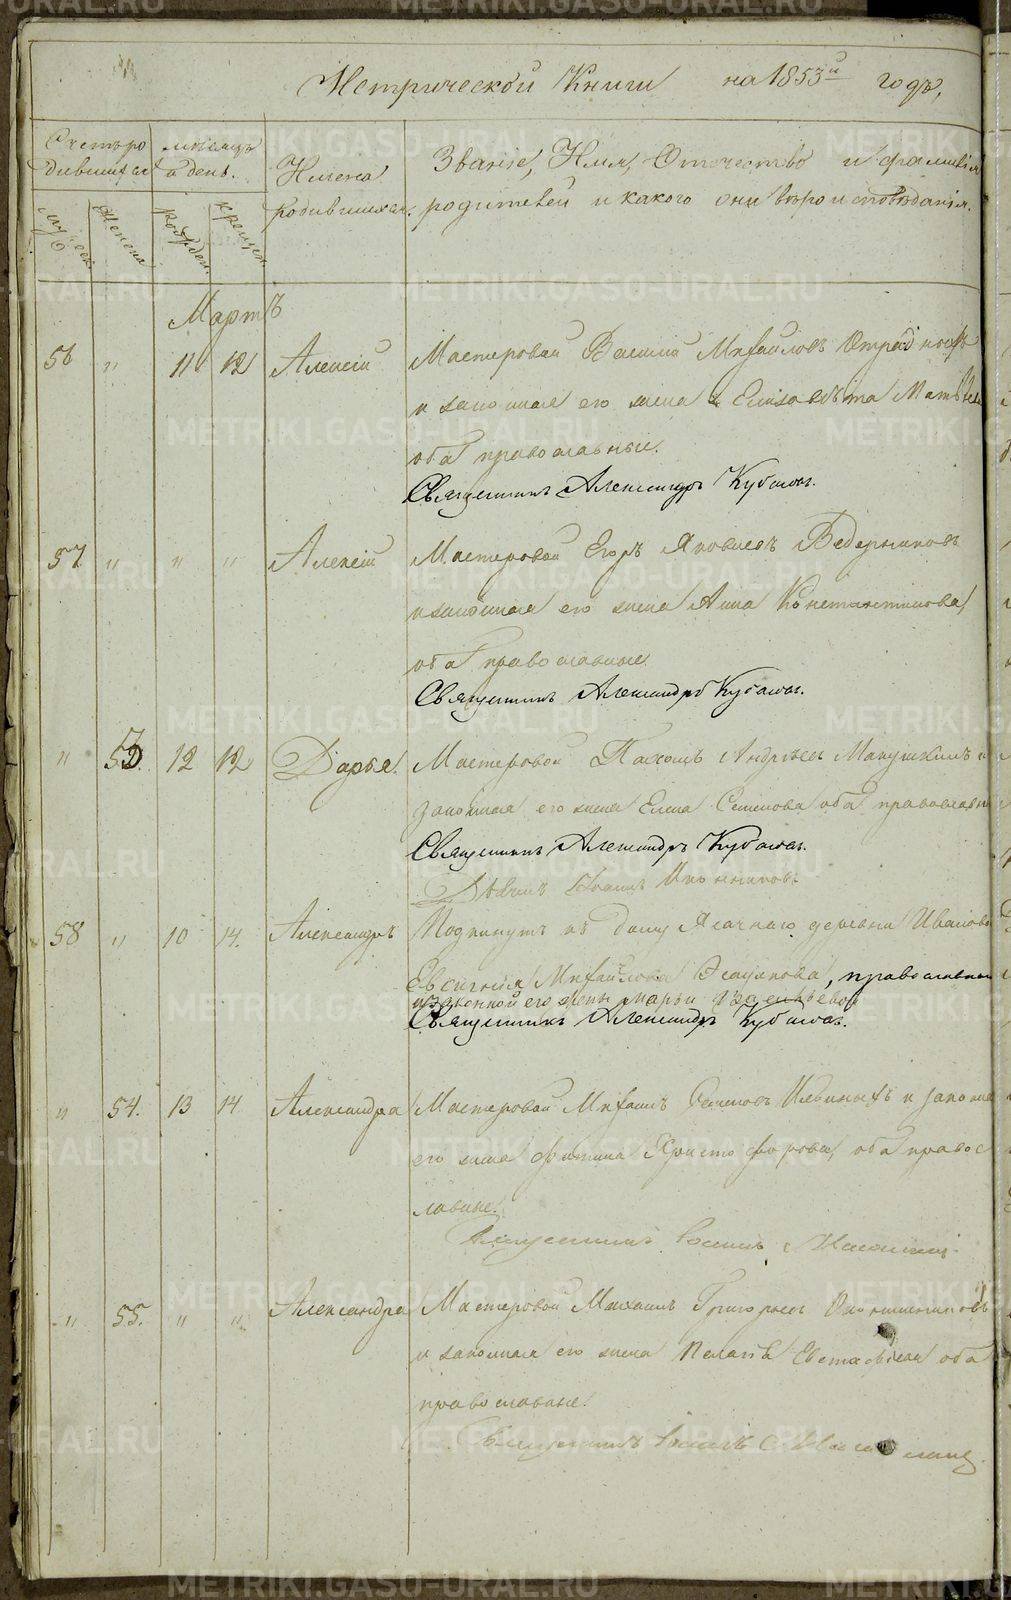 Метрической Книги на 1853й годъ,
Счетъ родившихся
мѣсяцъ и день.
Имена родившихся.
Званіе, Имя, Отчество и фамилія
родителей и какого они вѣроисповѣданія.
муж. пол.
Женска
рожден.
крещен.
Мартъ
56 " 11 12 Алексій Мастеровой Василій Михайловъ
и законная его жена Елизавета Матвѣева
оба православные.
Священникъ Александръ
57 " " " Алексій Мастеровой Егоръ Яковлевъ Ведерниковъ
и законная его жена Анна Константинова,
оба православные
Священникъ Александръ
" 53. 12 12 Дарья. Мастеровой Пахомъ Андрѣевъ и
законная его жена Елена Семенова оба православные
Священникъ Александръ
Діаконъ Иоаннъ Иконниковъ.
58 " 10 14. Александръ Подкинутъ къ дому Ясачнаго деревни Ивановой
Евсигнія Михайлова, православнаго
и законной его жены Марьи
Священникъ Александръ
" 54. 13 14 Александра Мастеровой Михаилъ Семеновъ Ильиныхъ и законная
его жена Фотина Христофорова, оба правос
лавные.
Священникъ
" 55. " " Александра Мастеровой Михаилъ Григорьевъ Оконишниковъ
и законная его жена Пелагѣя Евстафьева оба
православные.
Священникъ
METRIKI.GASO-URAL.RU